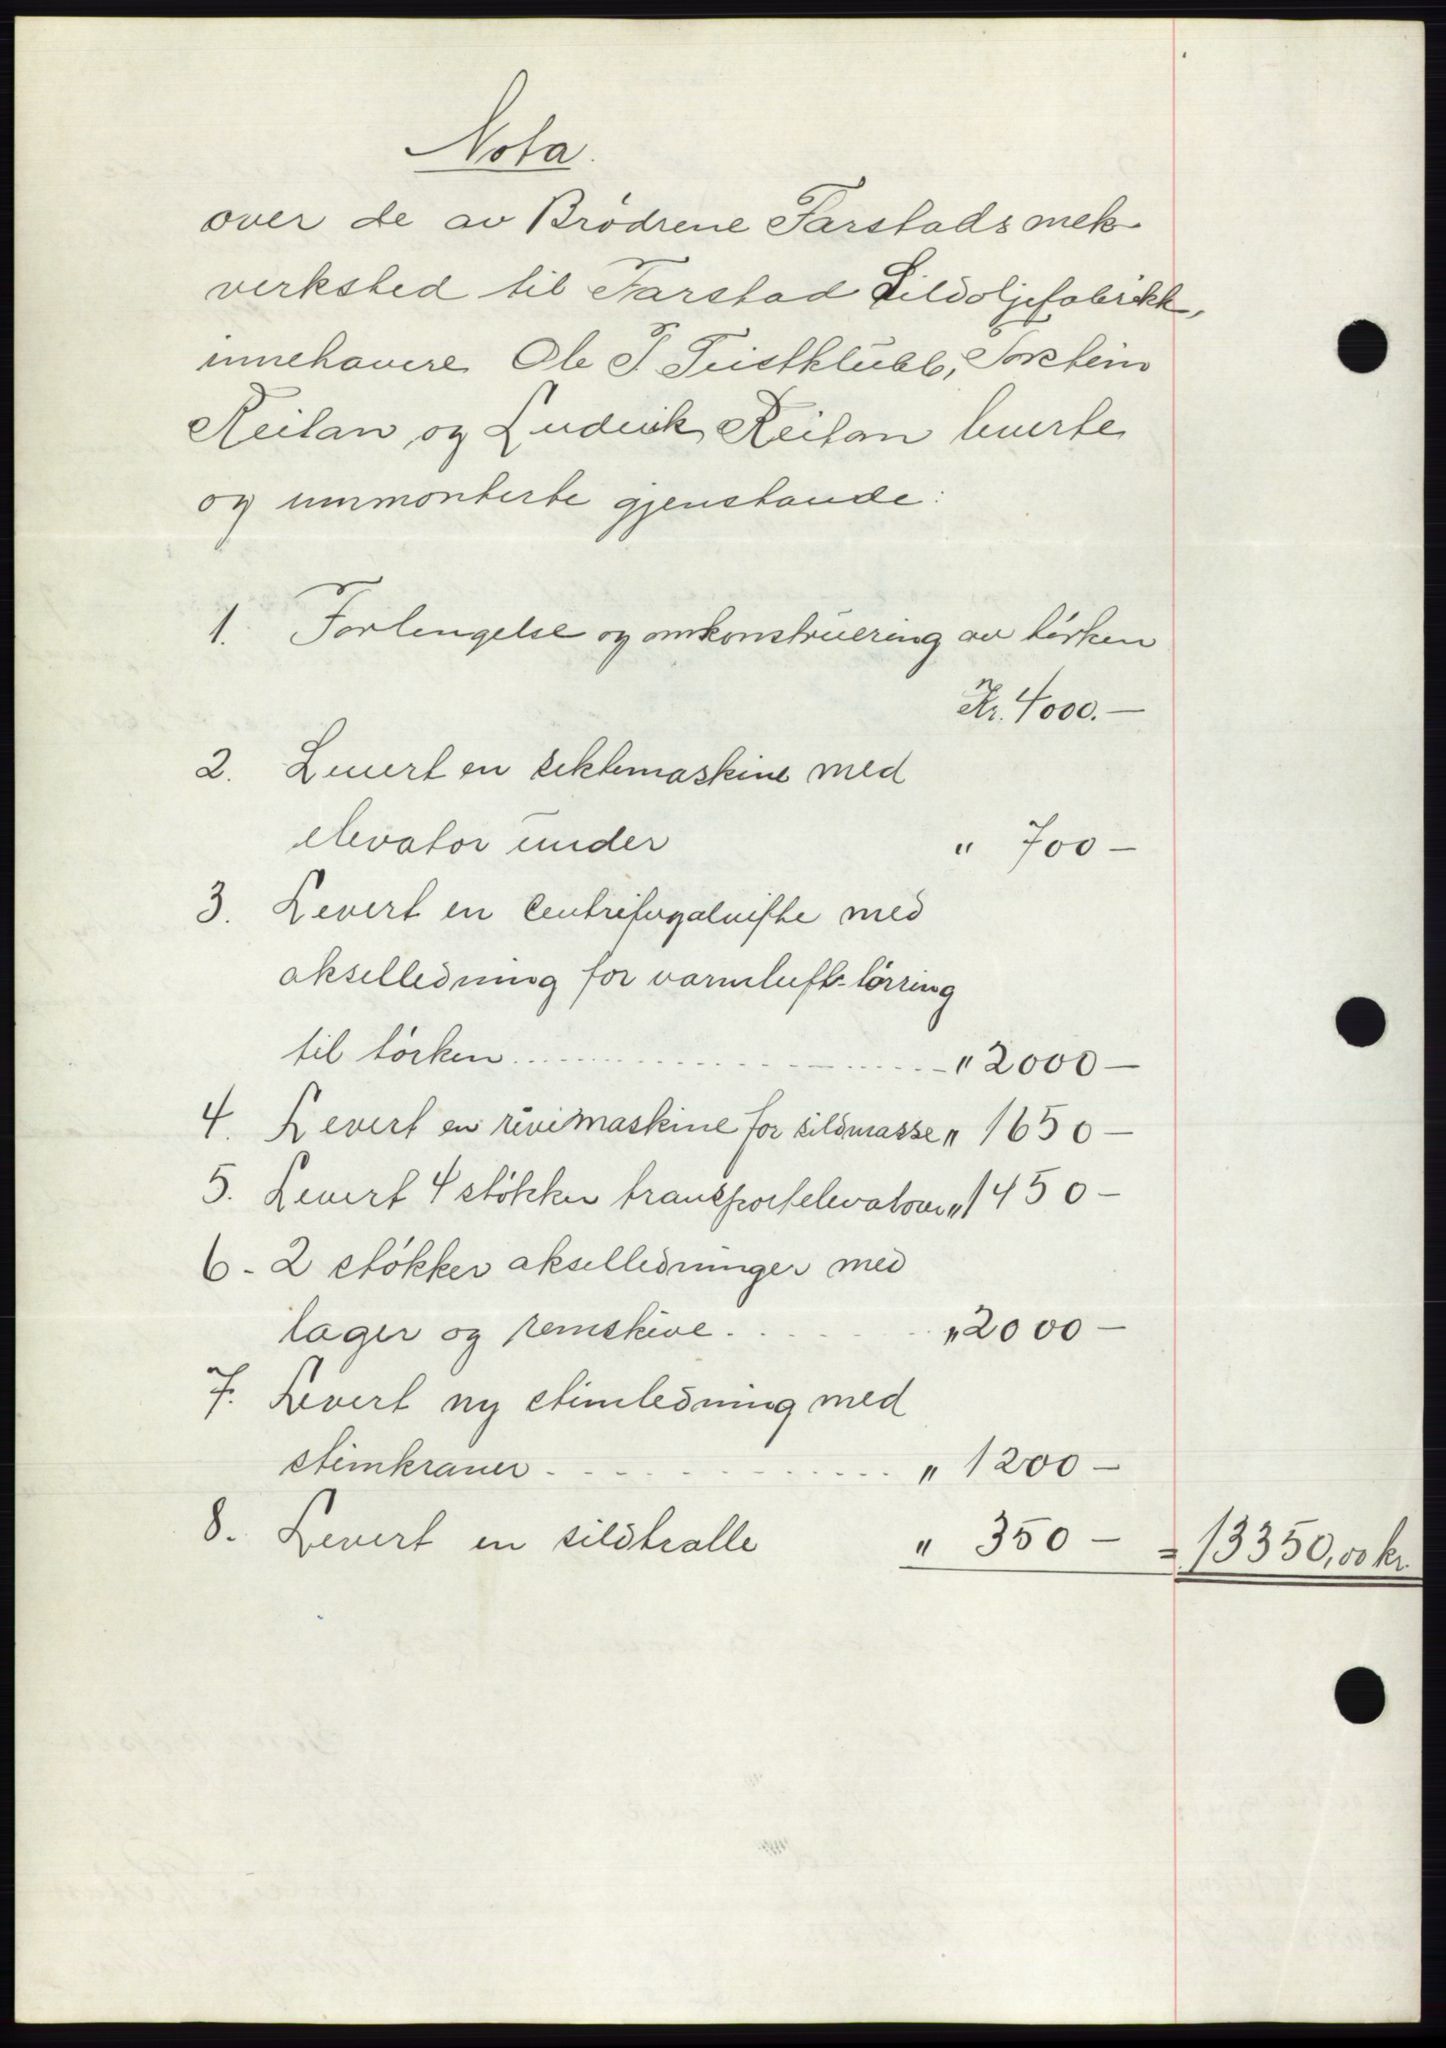 Nota.
over de av Brödrene Farstads mek
verksted til Farstad Sildoljefabrikk,
innehavere Ole P Teistklubb, Torstein
Reitan og Ludevik Reitan leverte
og innmonterte gjenstande:
1. Forlengelse og omkonstruering av törken
Kr. 4000.—
2. Levert en siktemaskine med
elevator under " 700 —
3. Levert en centrifugalvifte med
akselledning for varmluft-törring
til törken " 2000 —
4. Levert en rivemaskine for sildmasse " 1650 —
5. Levert 4 stökker transportelevatorer " 1450 —
6 - 2 stökker akselledninger med
lager og remskive " 2000 —
7. Levert ny stimledning med
stimkraner " 1200 —
8. Levert en sildtralle " 350 — = 13350,00 kr.